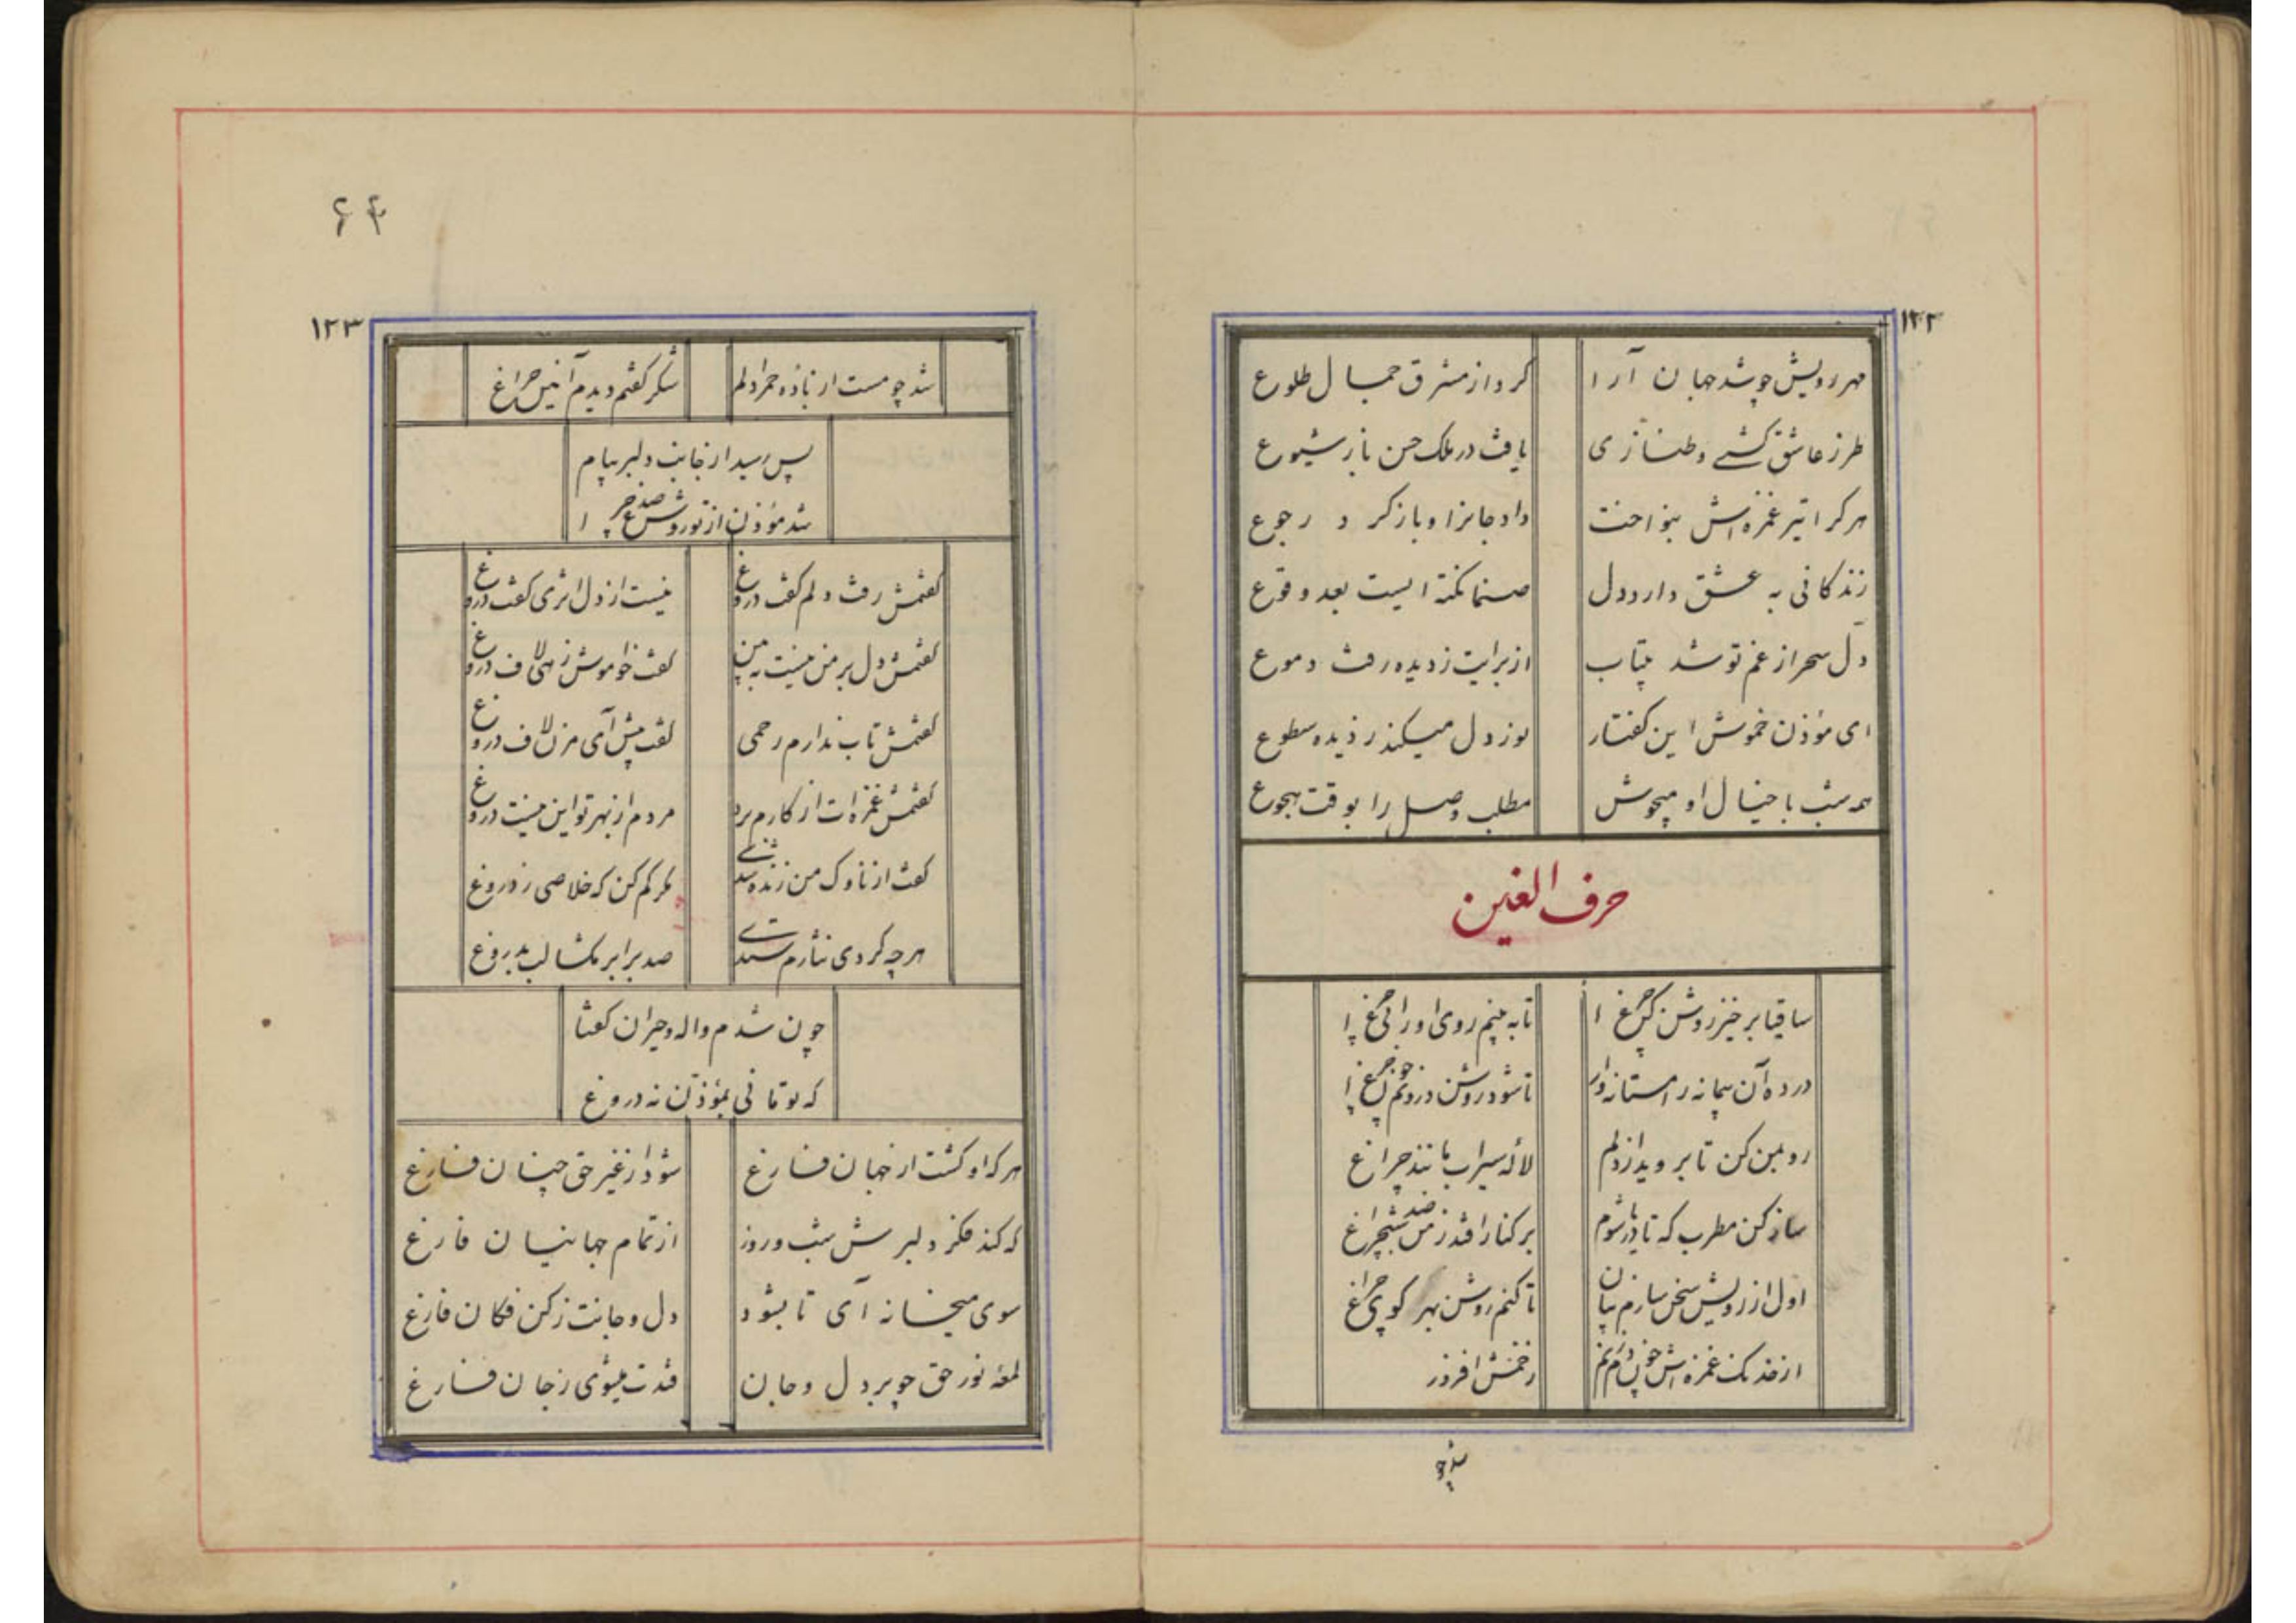 ۱۲۲
مهر رویش چو شد جهان آرا کرد از مشرق جمال طلوع
طرز عاشق کشی و طنازی یافت در ملک حسن باز شیوع
هر کرا تیر غمزه اش بنواخت داد جانرا و باز کرد رجوع
زندکانی به عشق دارد دل صنما نکته ایست بعد وقوع
دل سحر از غم تو شد بیتاب از برایت ز دیده رفت دموع
ای مؤذن خموش این کفتار نور دل میکند ز دیده سطوع
همه شب با خیال او میجوش مطلب وصل را بوقت هجوع
حرف الغین
ساقیا برخیز روشن کن چراغ تا به بینم روی او را بی چراغ
درده آن پیمانه را مستانه وار تا شود روشن درونم چون چراغ
رو بمن کن تا بروید از دلم لاله سیراب مانند چراغ
ساز کن مطرب که تا یادر شوم بر کنار افتد ز من صد شبچراغ
اول از رویش سخن سازم بیان تا کنم روشن بهر کویی چراغ
از خدنک غمزه اش چون دم زنم زخمش افروز
شد چو
۶۴
۱۲۳
شد چو مست از باده حمرا دلم شکر کفتم دیدم آنین چراغ
پس رسید از جانب دلبر پیام
شد مؤذن از تو روشن صد چراغ
کفتمش رفت دلم کفت دروغ نیست از دل اثری کفت دروغ
کفتمش دل بر من نیست به بین کفت خاموش ز هی لاف دروغ
کفتمش تاب ندارم رحمی کفت پیش آی مزن لاف دروغ
کفتمش غمزه ات از کارم برد مردم از بهر تو این نیست دروغ
کفت از ناوک من زنده شدی مکر کم کن که خلاصی ز دروغ
هرچه کردی نثارم ستدی صد برابر مکشا لب بدروغ
چون شدم واله و حیران کفتا
که تو تا نی بمؤذن نه دروغ
هر که او کشت از جهان فارغ شود از غیر حق چنان فارغ
که کند فکر دلبرش شب و روز از تمام جهانیان فارغ
سوی میخانه آی تا بشود دل و جانت ز کن فکان فارغ
لمعه نور حق چو برد دل و جان قدت میشوی ز جان فارغ